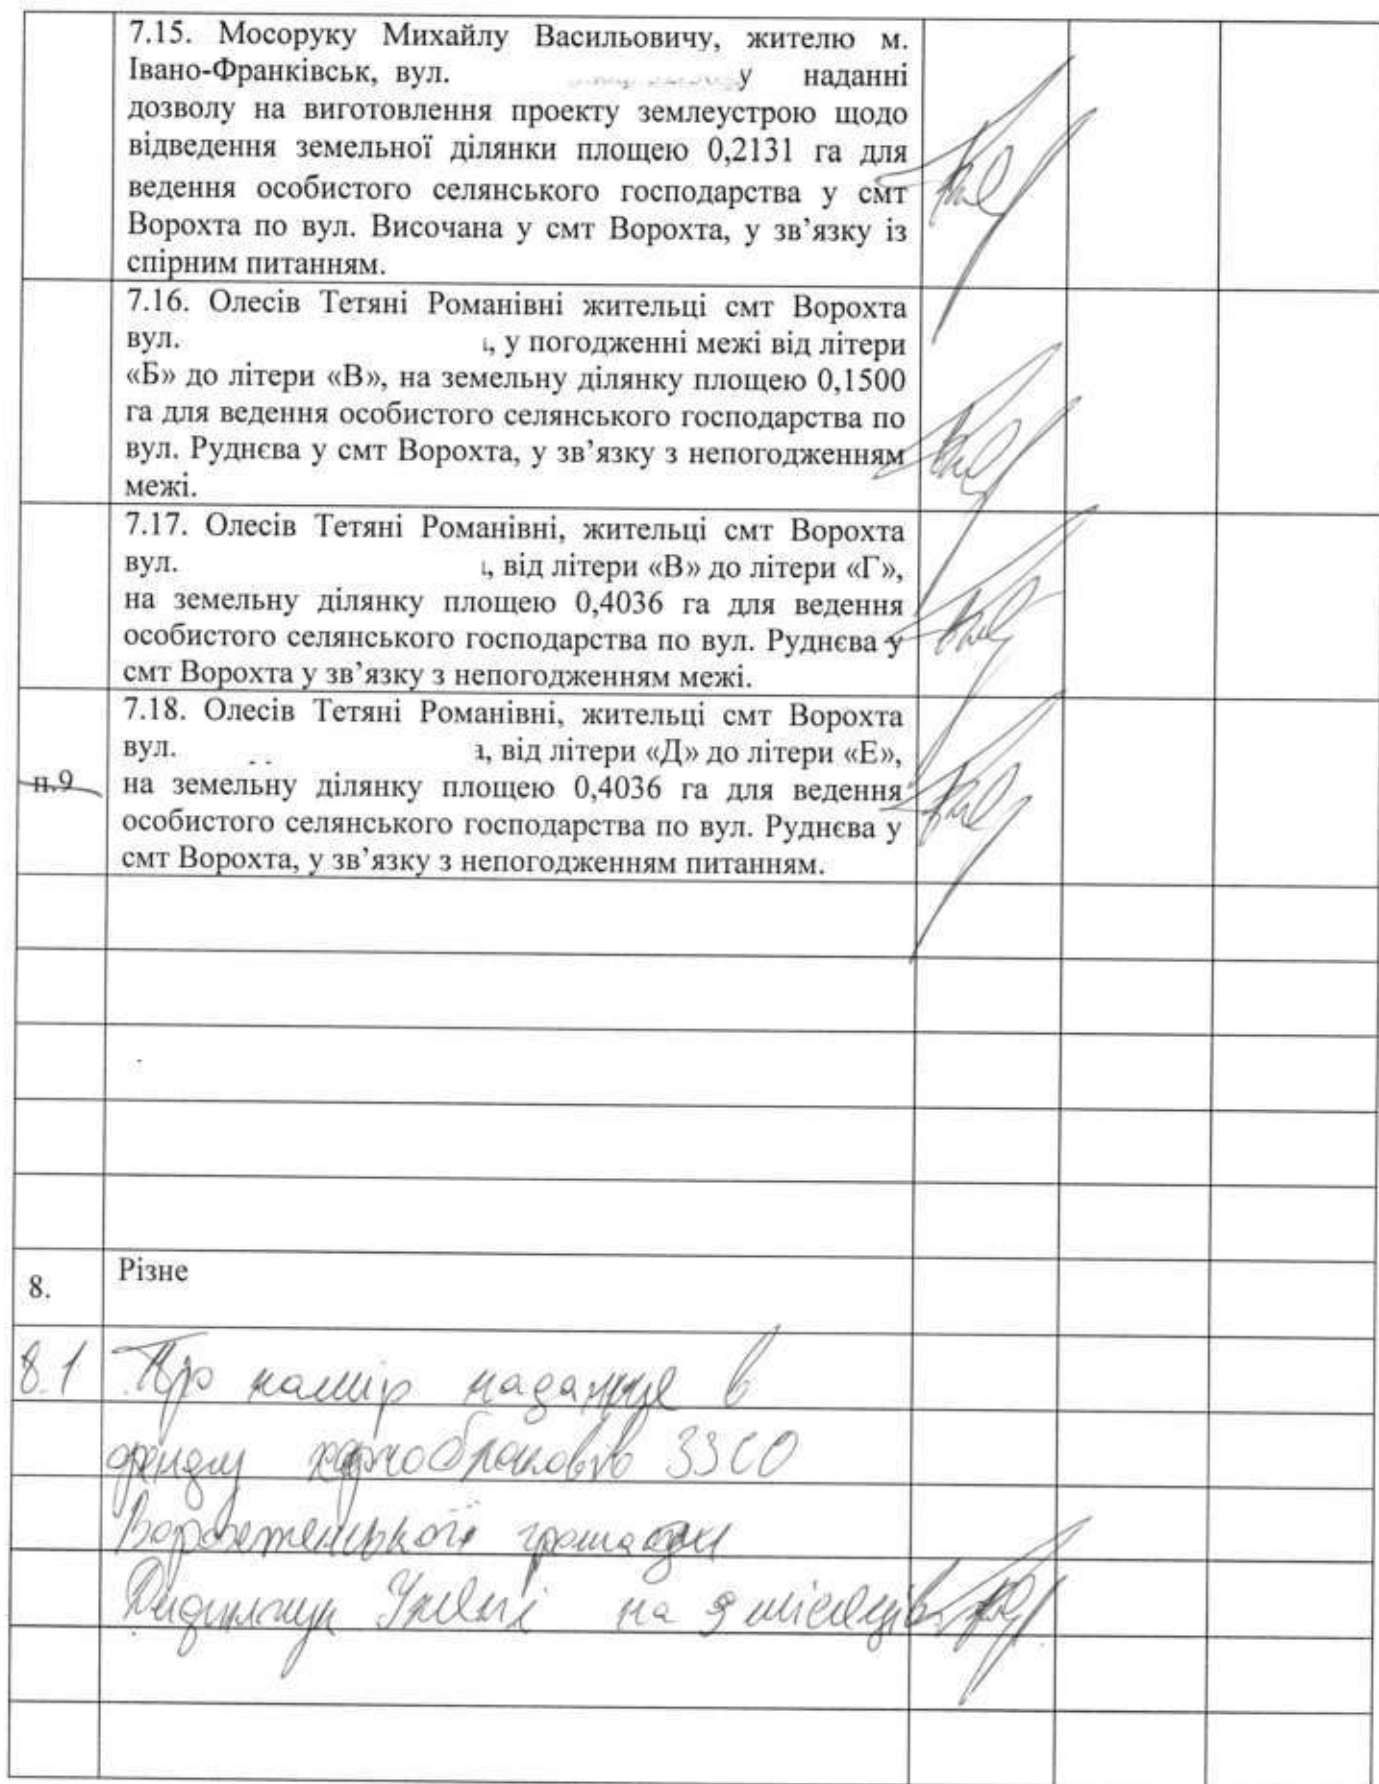 7.15. Мосоруку Михайлу Васильовичу, жителю м.
Івано-Франківськ, вул. у наданні
дозволу на виготовлення проекту землеустрою щодо
відведення земельної ділянки площею 0,2131 га для
ведення особистого селянського господарства у смт
Ворохта по вул. Височана у смт Ворохта, у зв’язку із
спірним питанням.
7.16. Олесів Тетяні Романівні жительці смт Ворохта
вул. , у погодженні межі від літери
«Б» до літери «В», на земельну ділянку площею 0,1500
га для ведення особистого селянського господарства по
вул. Руднєва у смт Ворохта, у зв’язку з непогодженням
межі.
7.17. Олесів Тетяні Романівні, жительці смт Ворохта
вул. , від літери «В» до літери «Г»,
на земельну ділянку площею 0,4036 га для ведення
особистого селянського господарства по вул. Руднєва у
смт Ворохта у зв’язку з непогодженням межі.
7.18. Олесів Тетяні Романівні, жительці смт Ворохта
вул. а, від літери «Д» до літери «Е»,
п.9 на земельну ділянку площею 0,4036 га для ведення
особистого селянського господарства по вул. Руднєва у
смт Ворохта, у зв’язку з непогодженням питанням.
8. Різне
8.1 Про намір надання в
оренду харчоблоків ЗЗСО
Ворохтенської громади
на 9 місяців